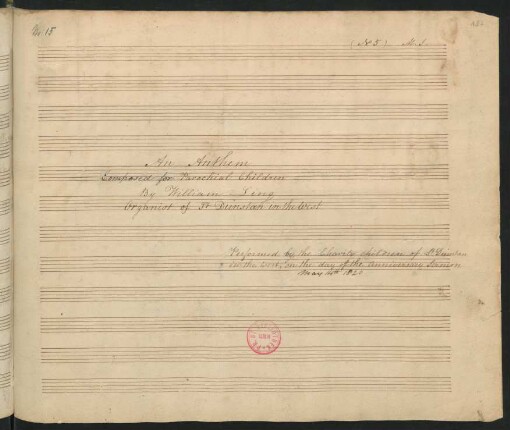 No 15
(No 5) M.S.
An Anthem
Composed for Parochial Children
By William
Organist of St Dunstan in the West
Performed by the Charity Children of St Dunstan
in the West, on the day of the anniversary Sermon
May